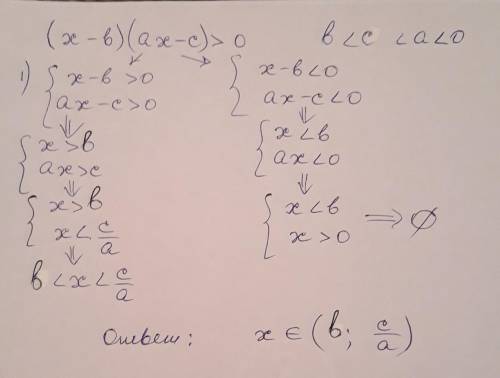 (x – b)(ax – c) > 0 b < c < a < 0
1) { x – b > 0
ax – c > 0
⇓
{ x > b
ax > c
⇓
{ x > b
x < c/a
⇓
b < x < c/a
{ x – b < 0
ax – c < 0
⇓
{ x < b
ax < 0
⇓
{ x < b
x > 0 ⟹ ∅
Ответ: x ∈ (b; c/a)